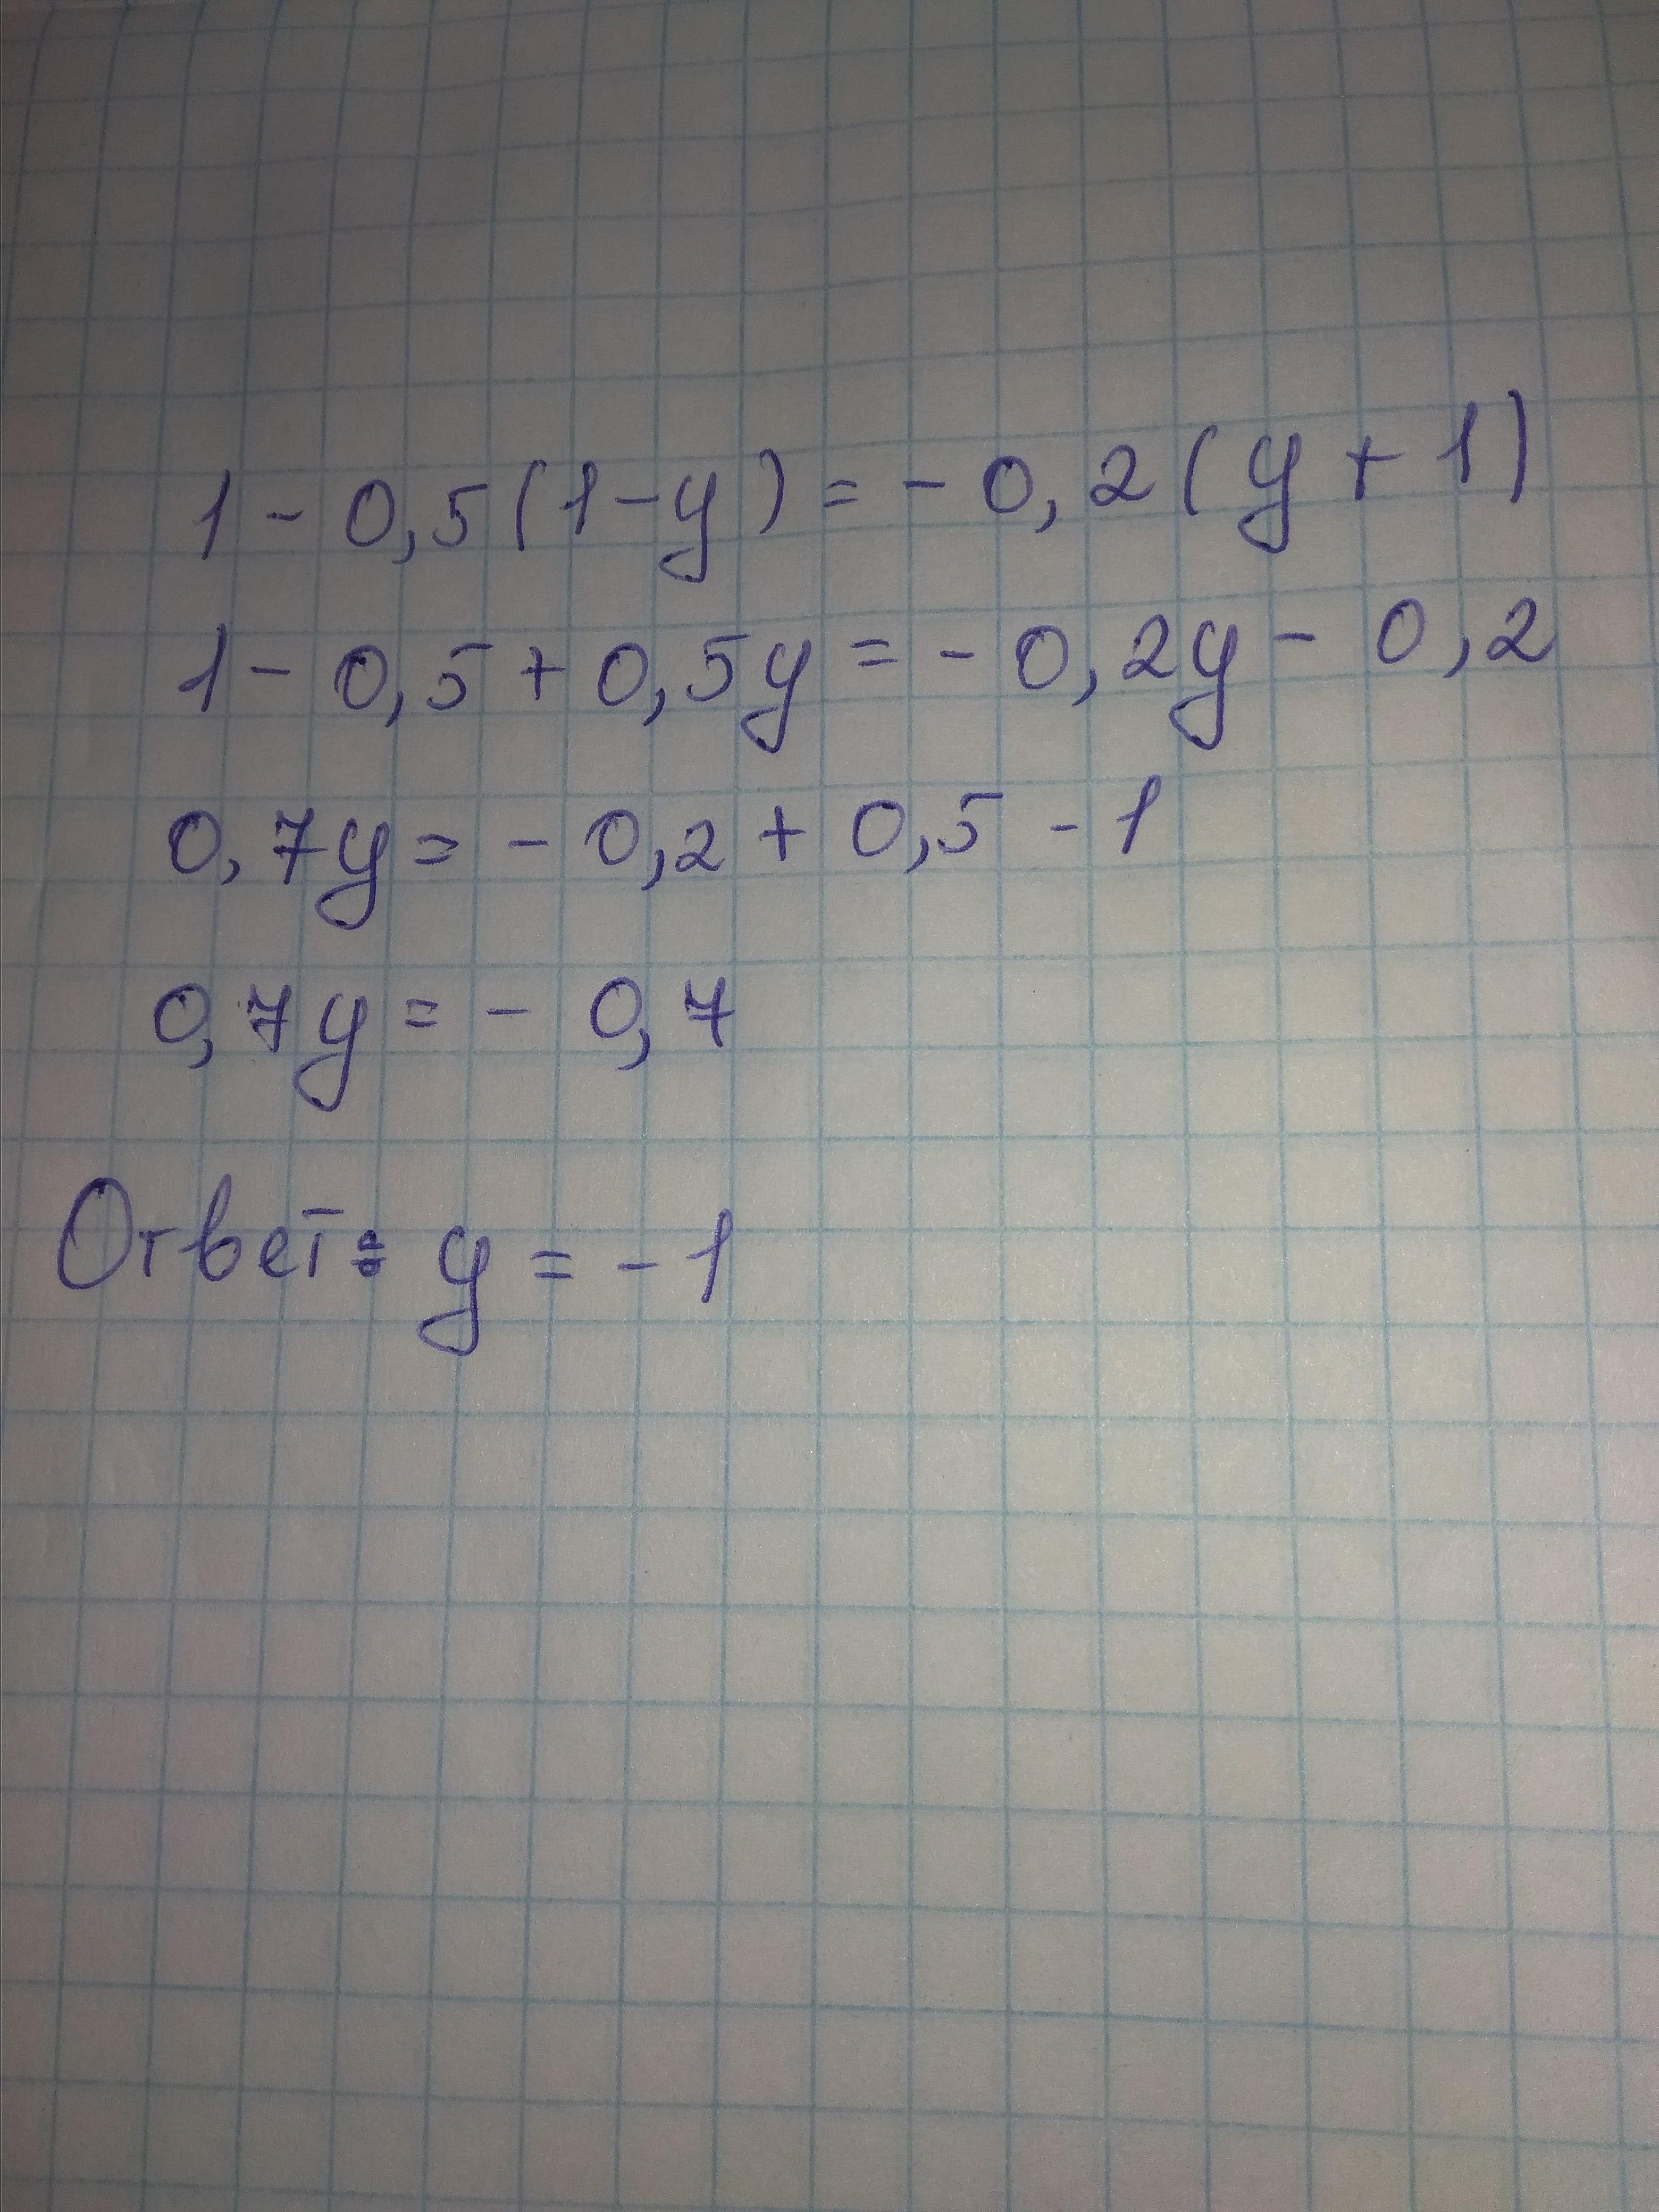 1 - 0,5(1-y) = - 0,2(y+1)
1 - 0,5 + 0,5y = - 0,2y - 0,2
0,7y = - 0,2 + 0,5 - 1
0,7y = - 0,7
Ответ: y = - 1